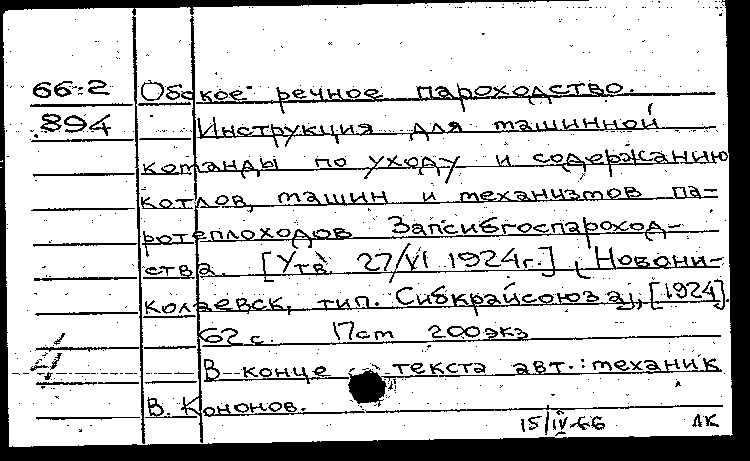 66-2 Обское речное пароходство.
894 Инструкция для машинной
команды по уходу и содержанию
котлов, машин и механизмов па-
ротеплоходов Запсибгоспароход-
ства. [Утв. 27/VI 1924г.] [Новони-
колаевск, тип. Сибкрайсоюза], [1924].
62 с. 17 см 200 экз
В конце текста авт.: механик
В. Кононов.
15/IV-66 ЛК